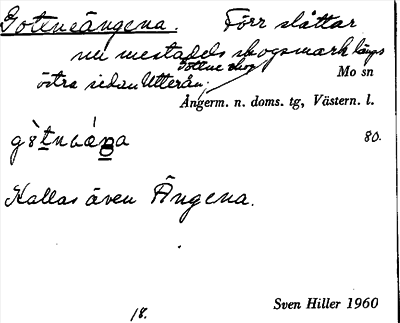 Gotneängena. Förr slåttar
nu mestadels skogsmark längs
östra sidan Utterån.
Mo sn
Ångerm. n. doms. tg, Västern. l.
80.
Kallas även Ängena.
18.
Sven Hiller 1960